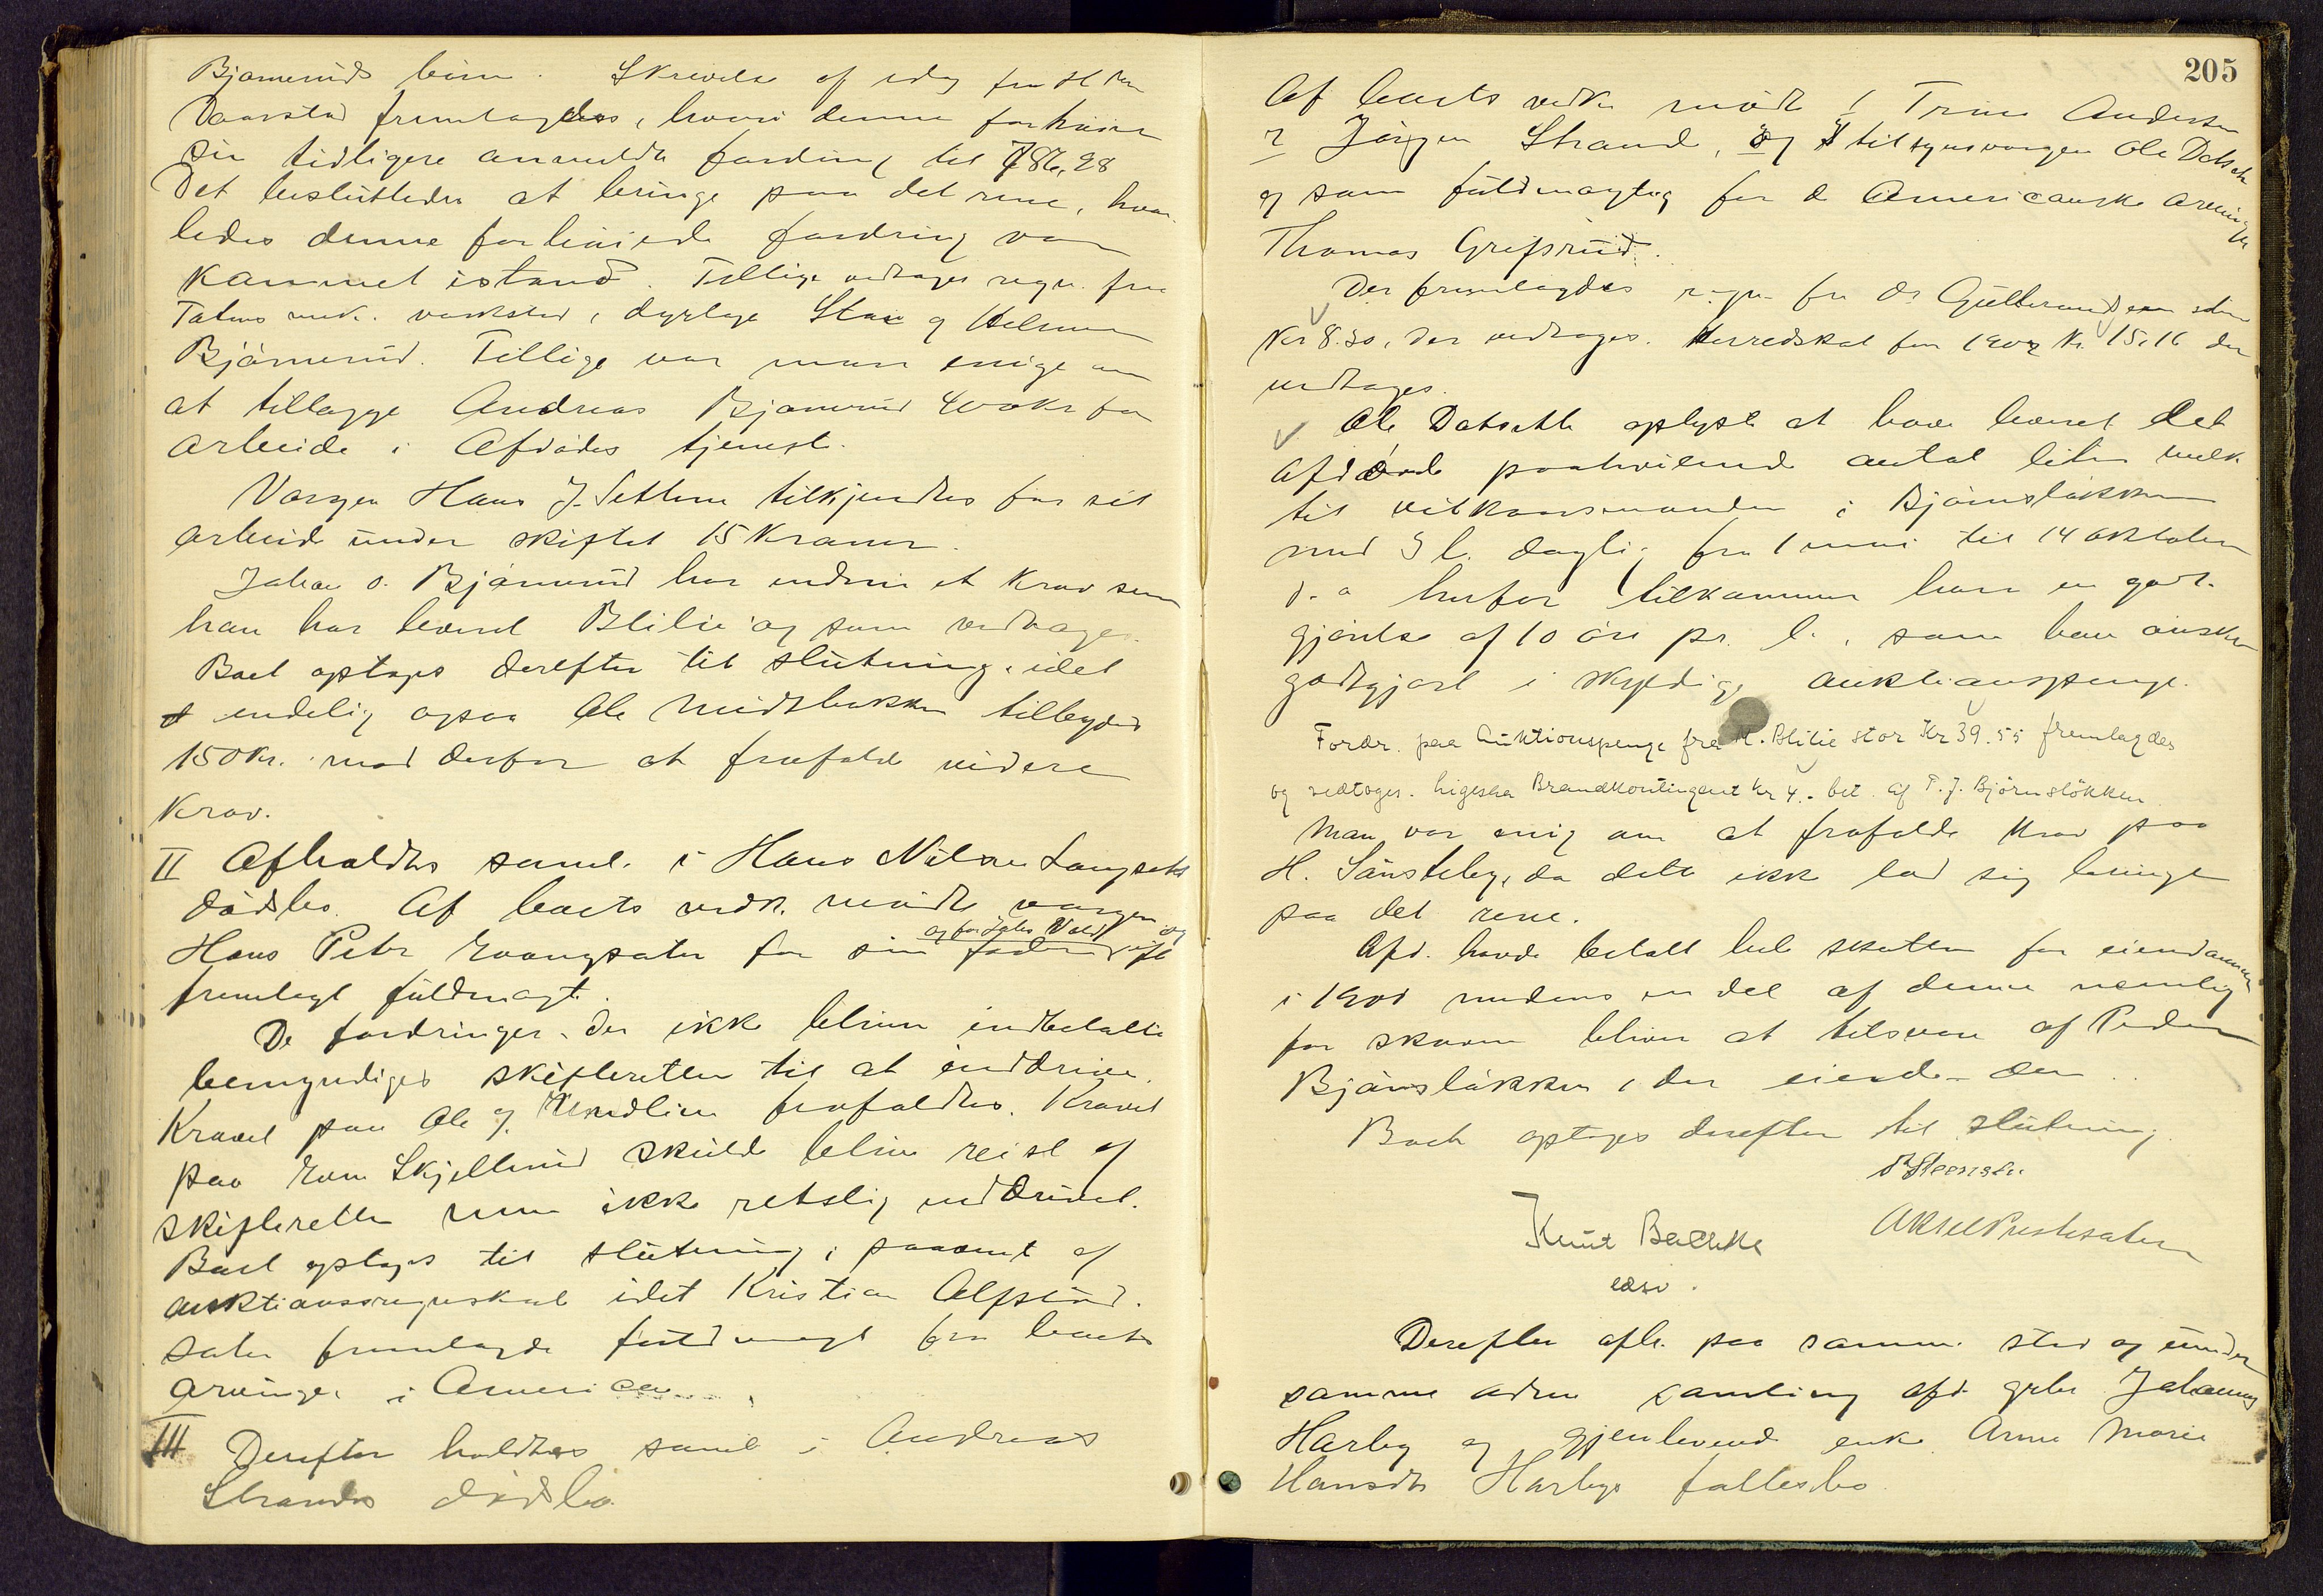 Bjørnerüds Skrivelse af idag fra
Vaarstad fremlagdes, hvori denne forhøier
sin tidligere anmeldte fordring til 786,28
Det besluttedes at bringe paa det rene, hvor-
ledes denne forhøiede fordring var
kommet istand. Tillige vedtages regn. fra
Totens mek. verksted, dyrlæge Stai og
Bjørnerüd. Tillige var man enige om
at tillægge Andreas Bjørnerüd 400 kr for
arbeide i Afdødes tjeneste.
Vergen Hans J. Sethne tilkjendtes for sit
arbeide ünder skiftet 15 Kroner.
Johan O. Bjørnerüd har endnu et krav som
han har leveret Blilie og som vedtages.
Boet optoges derefter til slütning, idet
endelig ogsaa Ole tilbydes
150 kr. mod derfor at frafalde videre
Krav.
II Afholdtes saml. i Hans Nilsen Langsets
dødsbo. Af boets vedk. mødte vergen og
og for
Hans Peter for sin fader ifl
fremlagt füldmagt.
De fordringer, der ikke bliver indbetalte
bemyndiges skifteretten til at inddrive.
Kravet paa Ole J. frafaldtes. Kravet
paa Skjellerüd skülde blive reist af
skifteretten men ikke retslig inddrivet.
Boet optoges til slütning i paavente af
auktionsregnskab idet Kristian
fremlagde füldmagt fra boets
arvinger i America.
III Derefter holdtes saml i Andreas
Strands dødsbo.
205
Af boets vedk. mødte 1 Trine Andersen
2 Jørgen Strand, og tilsynsvergen Ole
og som füldmægtig for de Americanske arvinger
Thomas Grefsrüd.
Der fremlagdes regn. fra Dr. Gulbrandsen
Kr 8.30, der vedtoges. Herredskat for 1902 Kr. 15,16 der
vedtages.
Ole oplyste at have leveret det
afdøde paahvilende antal liter melk
til vilkaarsmanden i Bjørnsløkken
med 3 l. daglig fra 1 mai til 14 oktober
d. a herfor tilkommer ham en godt-
gjørelse af 10 øre pr. l., som han ønsker
godtgjort i skyldige auktionspenge.
Fordr. paa Auktionspenge fra H. Blilie stor Kr 39.55 fremlagdes
og vedtoges. ligesaa Brandkontingent kr 4.- bet. af P. J. Bjørnsløkken
Man var enig om at frafalde krav paa
H. Sønsteby, da dette ikke lod sig bringe
paa det rene.
Afd. havde betalt hele skatten for eiendommen
i 1901 medens en del af denne nemlig
for skoven bliver at tilsvare af Peder
Bjørnsløkken, der eiede den.
Boet optoges derefter til slütning.
Knüt Bakke
Aksel Prestesæter
edsv.
Derefter afh. paa samme sted og ünder
samme adm samling afd. gbr. Johannes
Harby og gjenlevende enke Anne Marie
Hansdtr Harbys fællesbo.